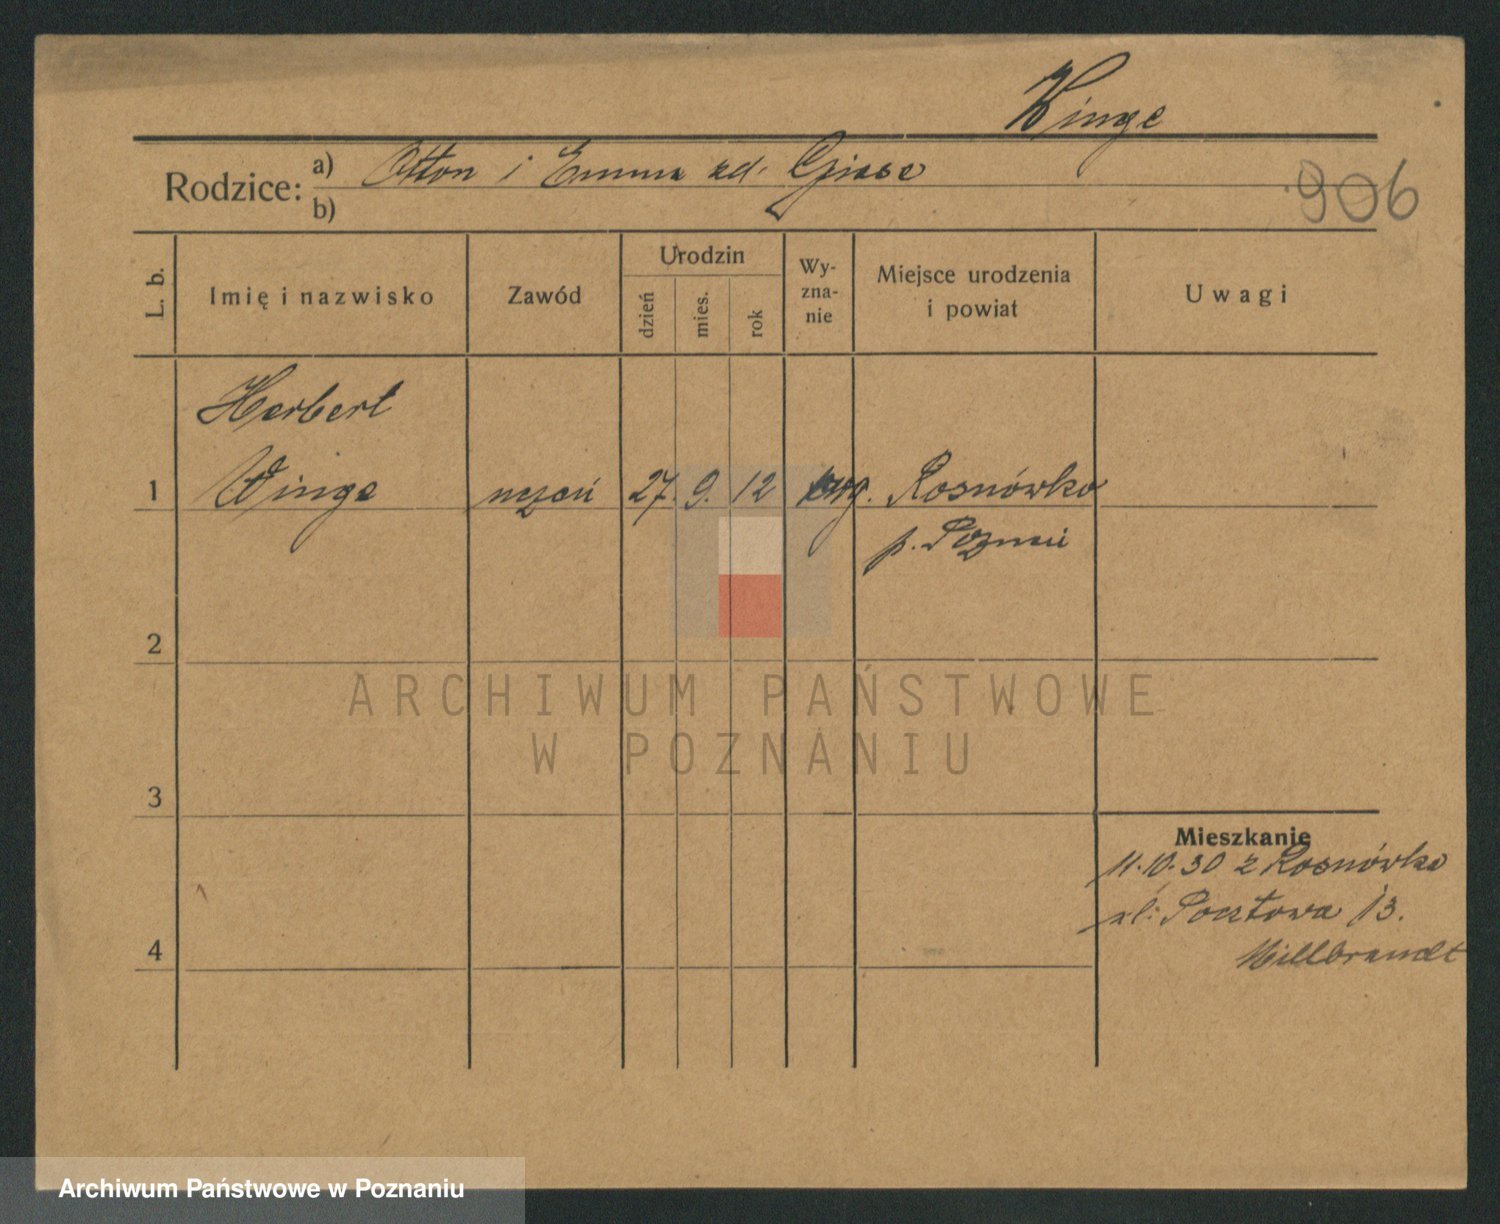 Winge
Rodzice: a) Otton i Emma zd. Giese
b)
906
L. b. Imię i nazwisko Zawód Urodzin dzień mies. rok Wy-zna-nie Miejsce urodzenia i powiat Uwagi
Herbert
1 Winge uczeń 27. 9. 12 ewg. Rosnówko
p. Poznań
2
ARCHIWUM PAŃSTWOWE
W POZNANIU
3
Mieszkanie
11.10.30 z Rosnówka
ul: Pocztowa 13.
4 Hillbrandt
Archiwum Państwowe w Poznaniu